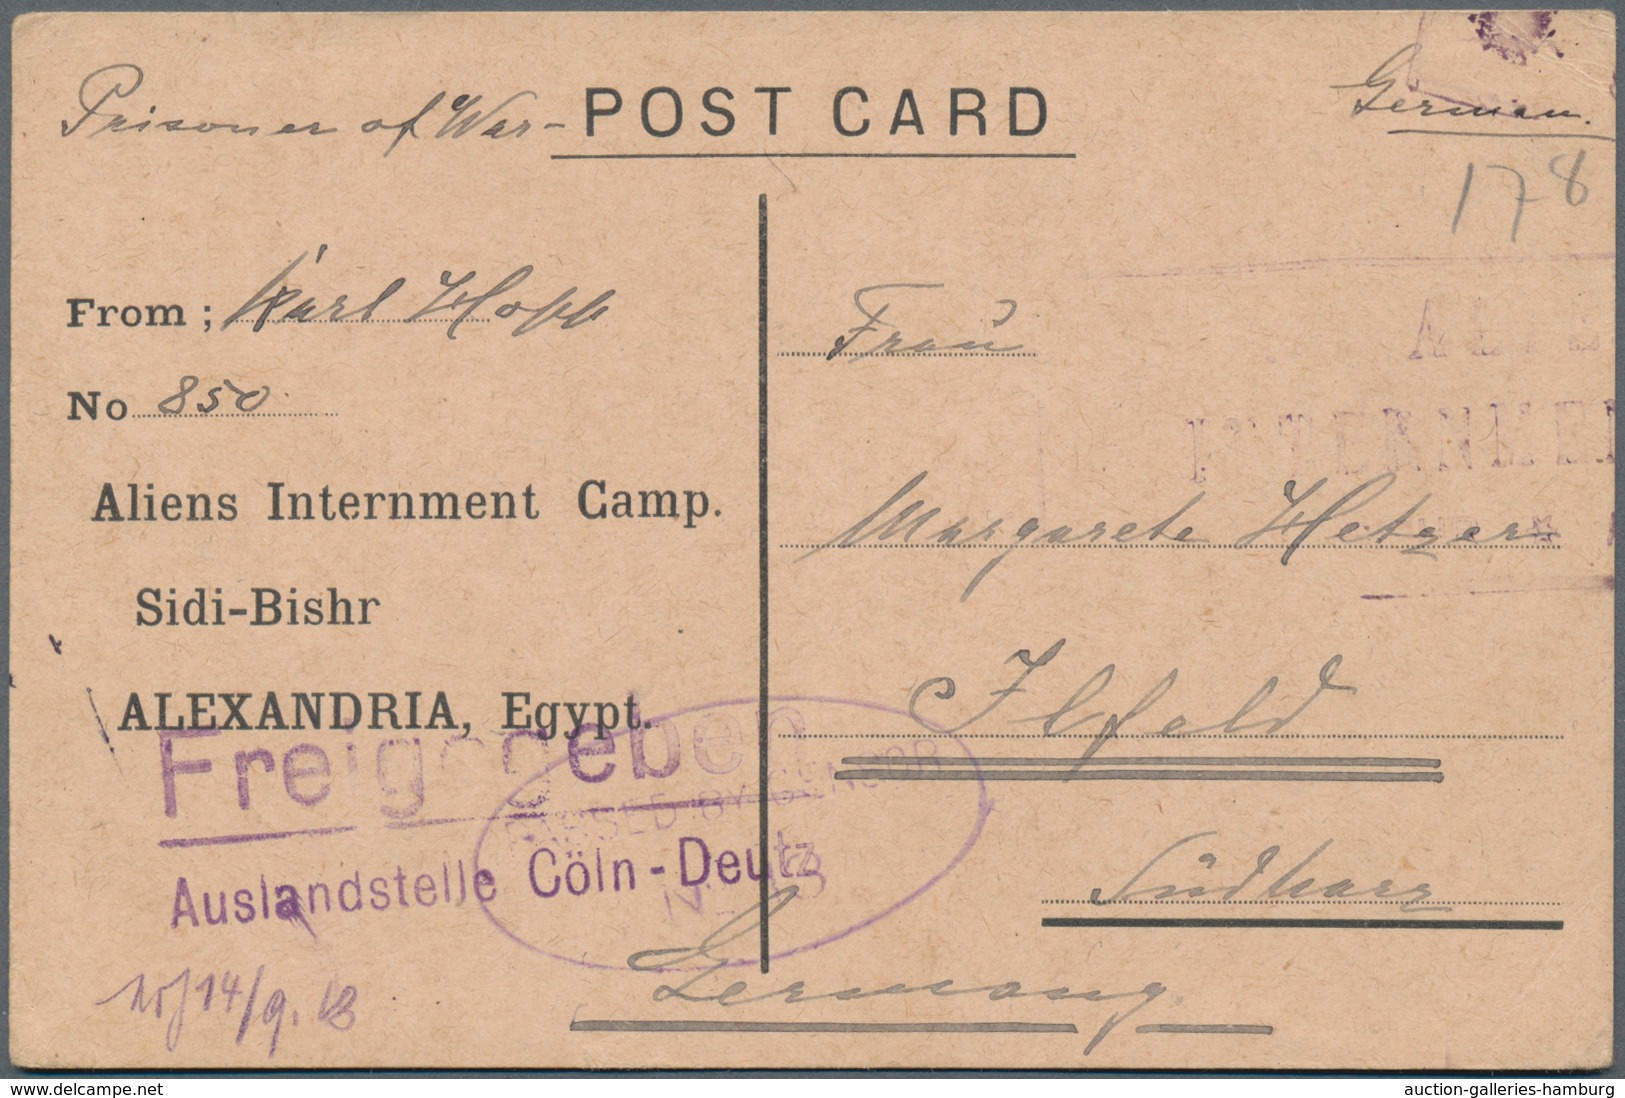 Prisoner of War - POST CARD
German.
178
From ; Karl Hopp
No 850
Aliens Internment Camp.
Sidi-Bishr
ALEXANDRIA, Egypt.
Frau
Margarete Hetzer
Ilfeld
Südharz
Germany.
INTERNMEN
Freigegeben
Auslandstelle Cöln-Deutz
PASSED BY CENSOR
14/9. 18
www.delcampe.net
auction-galleries-hamburg